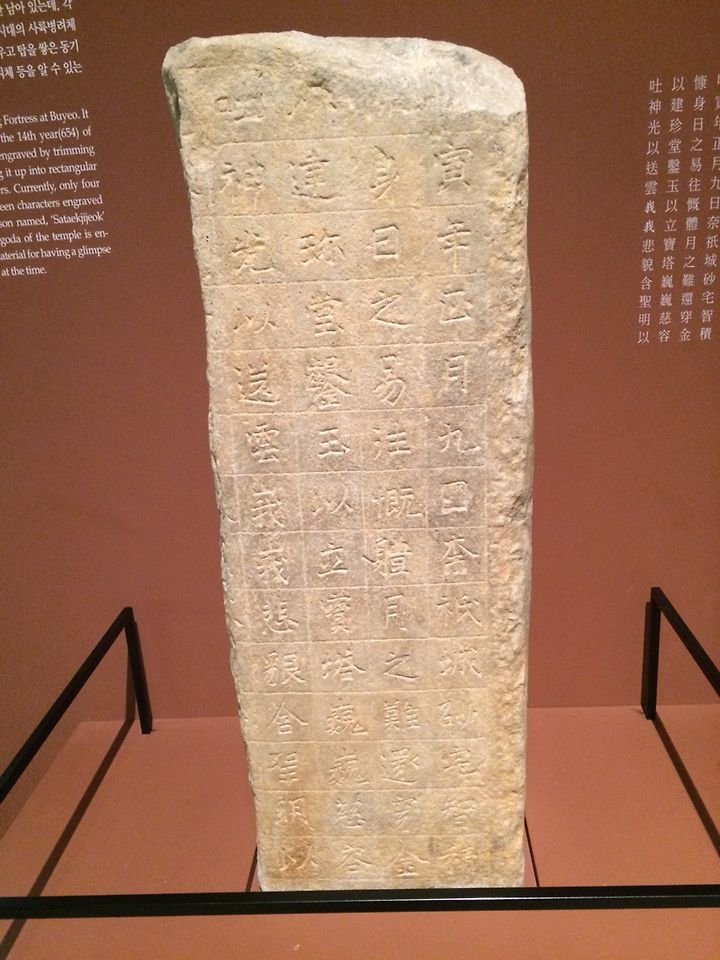 남아 있는데, 각
시대의 사륙병려체
우고 탑을 쌓은 동기
체 등을 알 수 있는
Fortress at Buyeo. It
the 14th year(654) of
engraved by trimming
g it up into rectangular
rs. Currently, only four
een characters engraved
son named, 'Sataekjijeok'
goda of the temple is en-
aterial for having a glimpse
at the time.
寅年正月九日奈祇城砂宅智積
慷身日之易往慨體月之難還穿金
以建珍堂鑿玉以立寶塔巍巍慈容
吐神光以送雲峩峩悲貌含聖明以
寅年正月九日奈祇城砂宅智積
慷身日之易往慨體月之難還穿金
以建珍堂鑿玉以立寶塔巍巍慈容
吐神光以送雲峩峩悲貌含聖明以